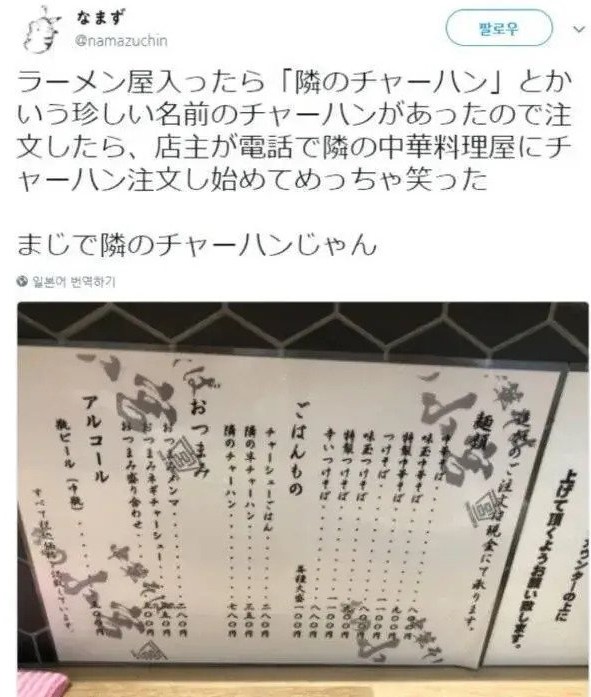 なまず
@namazuchin
팔로우
ラーメン屋入ったら「隣のチャーハン」とか
いう珍しい名前のチャーハンがあったので注
文したら、店主が電話で隣の中華料理屋にチ
ャーハン注文し始めてめっちゃ笑った
まじで隣のチャーハンじゃん
일본어 번역하기
上げて頂くようお願い致します。
カウンターの上に
のご注文は現金にて承ります。
麺類
中華そば
味玉中華そば
特製中華そば
つけそば
味玉つけそば
特製つけそば
辛いつけそば
各種大盛一〇〇円
ごはんもの
チャーシューごはん 二八〇円
隣の半チャーハン 三五〇円
隣のチャーハン 七八〇円
おつまみ
おつまみメンマ 二八〇円
おつまみネギチャーシュー
おつまみ盛り合わせ
アルコール
瓶ビール（中瓶）